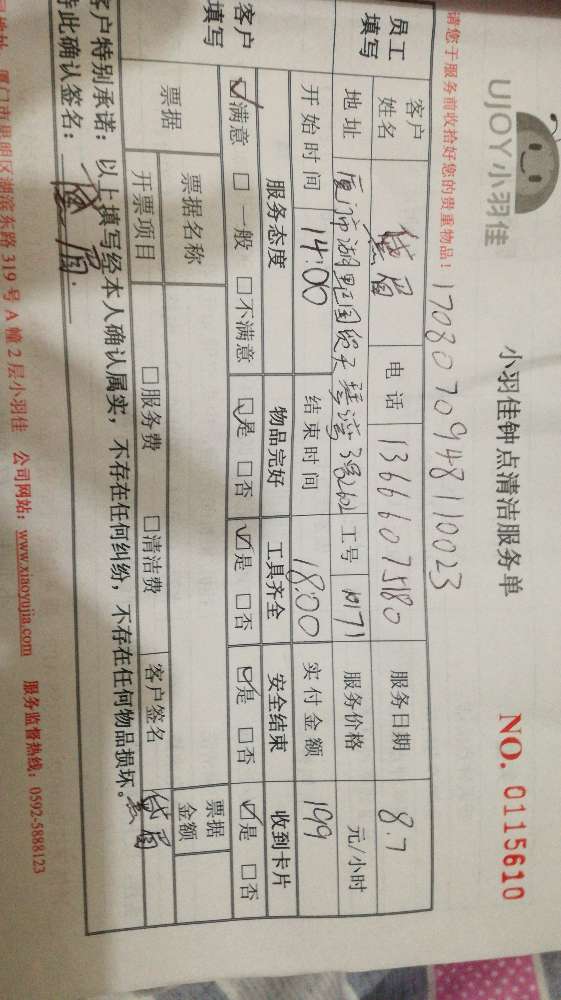 UJOY小羽佳
小羽佳钟点清洁服务单
NO. 0115610
请您于服务前收拾好您的贵重物品！
1708070948110023
员工填写
客户姓名 电话 13666075180 服务日期 8.7
地址 厦门市湖里区国贸天琴湾 工号 服务价格 元/小时
开始时间 14:00 结束时间 18:00 实付金额 199
客户填写
服务态度 物品完好 工具齐全 安全结束 收到卡片
☑满意 □一般 □不满意 ☑是 □否 ☑是 □否 ☑是 □否 ☑是 □否
票据 票据名称 票据金额
开票项目 □服务费 □清洁费 客户签名
客户特别承诺：以上填写经本人确认属实，不存在任何纠纷，不存在任何物品损坏。
特此确认签名：
厦门市思明区湖滨东路 319 号 A 幢 2 层小羽佳 公司网站：www.xiaoyujia.com 服务监督热线：0592-5888123